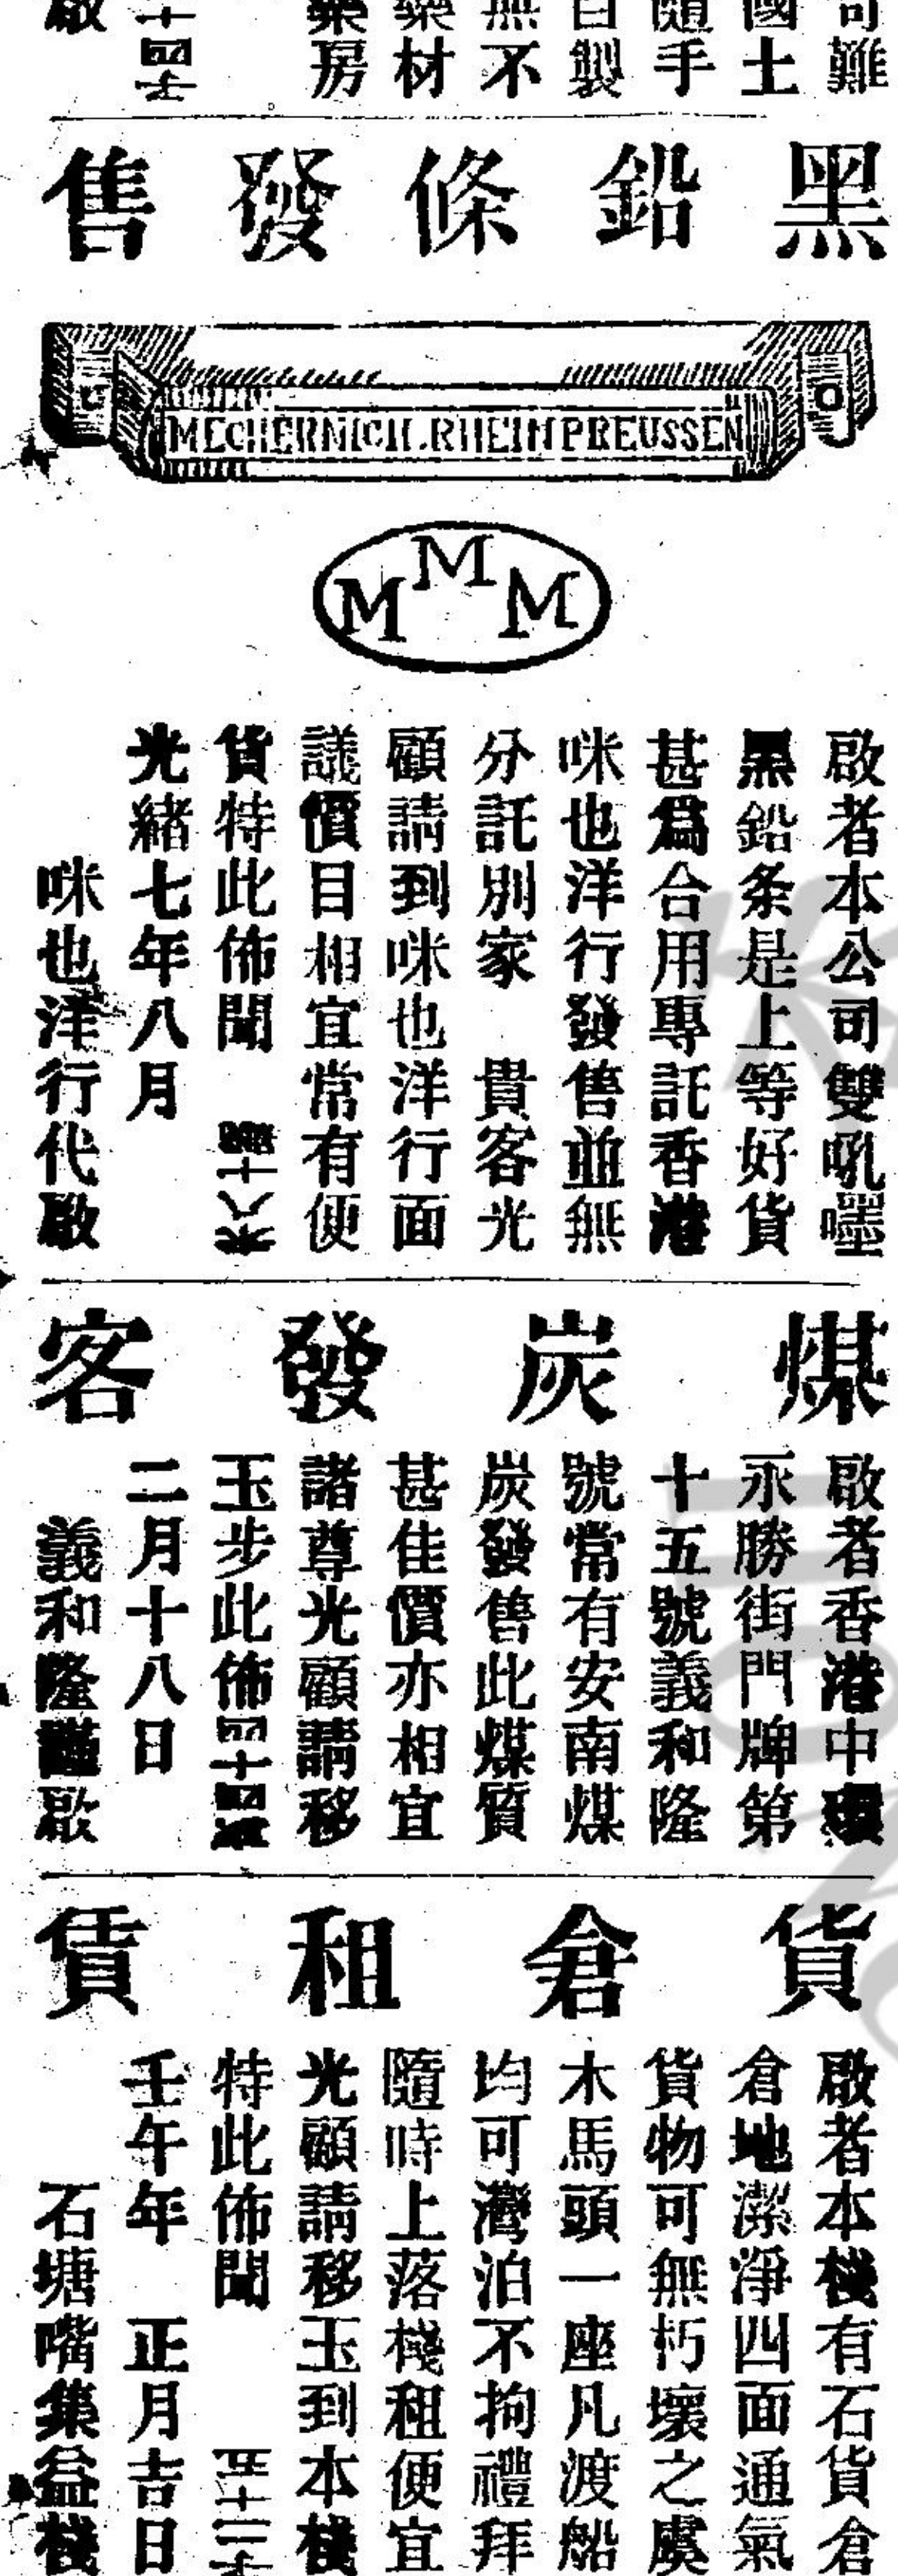 可難
國土
隨手
自製
無不
藥材
藥房
十四
啟
黑鉛條發售
MECHERNICH.RHEINPREUSSEN
M M M
啟者本公司雙吼嚜
黑鉛条是上等好貨
甚爲合用專託香港
咪也洋行發售並無
分託別家 貴客光
顧請到咪也洋行面
議價目相宜常有便
貨特此佈聞
光緒七年八月
咪也洋行代啟
煤炭發客
啟者香港中環
永勝街門牌第
十五號義和隆
號常有安南煤
炭發售此煤質
甚佳價亦相宜
諸尊光顧請移
玉步此佈
二月十八日
義和隆謹啟
貨倉租賃
啟者本棧有石貨倉
倉地潔淨四面通氣
貨物可無朽壞之虞
木馬頭一座凡渡船
均可灣泊不拘禮拜
隨時上落棧租便宜
光顧請移玉到本棧
特此佈聞
壬午年 正月吉日
石塘嘴集益棧